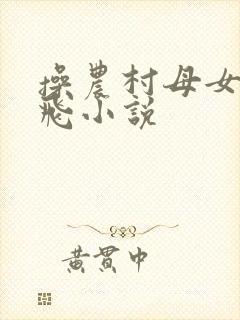 操農村母女
飛小說
黃貫中